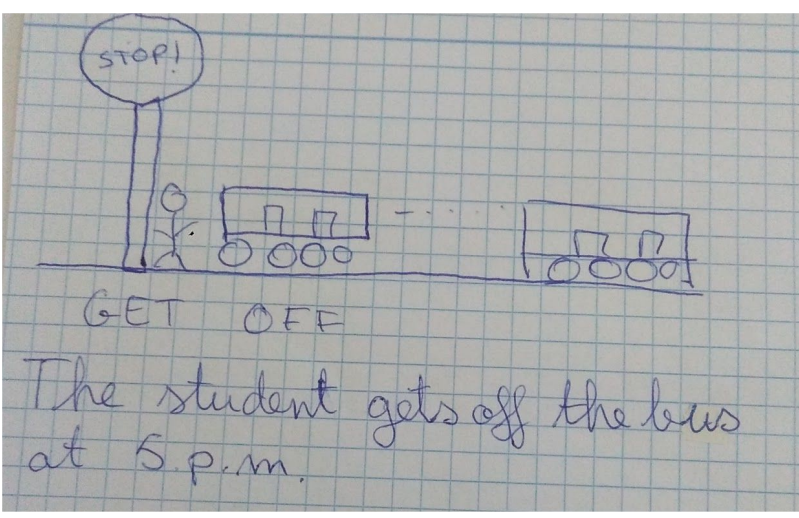 STOP!
GET OFF
The student gets off the bus
at 5 p.m.